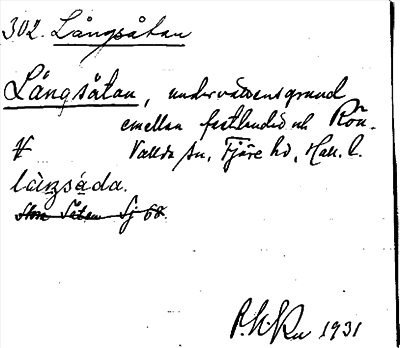 302. Långsåtan
Långsåtan, undervattensgrund
emellan fastlandet och Rön.
Vallda sn, Fjäre hd, Hall. l.
làŋsáda.
Stora Såten Sj 68.
1931